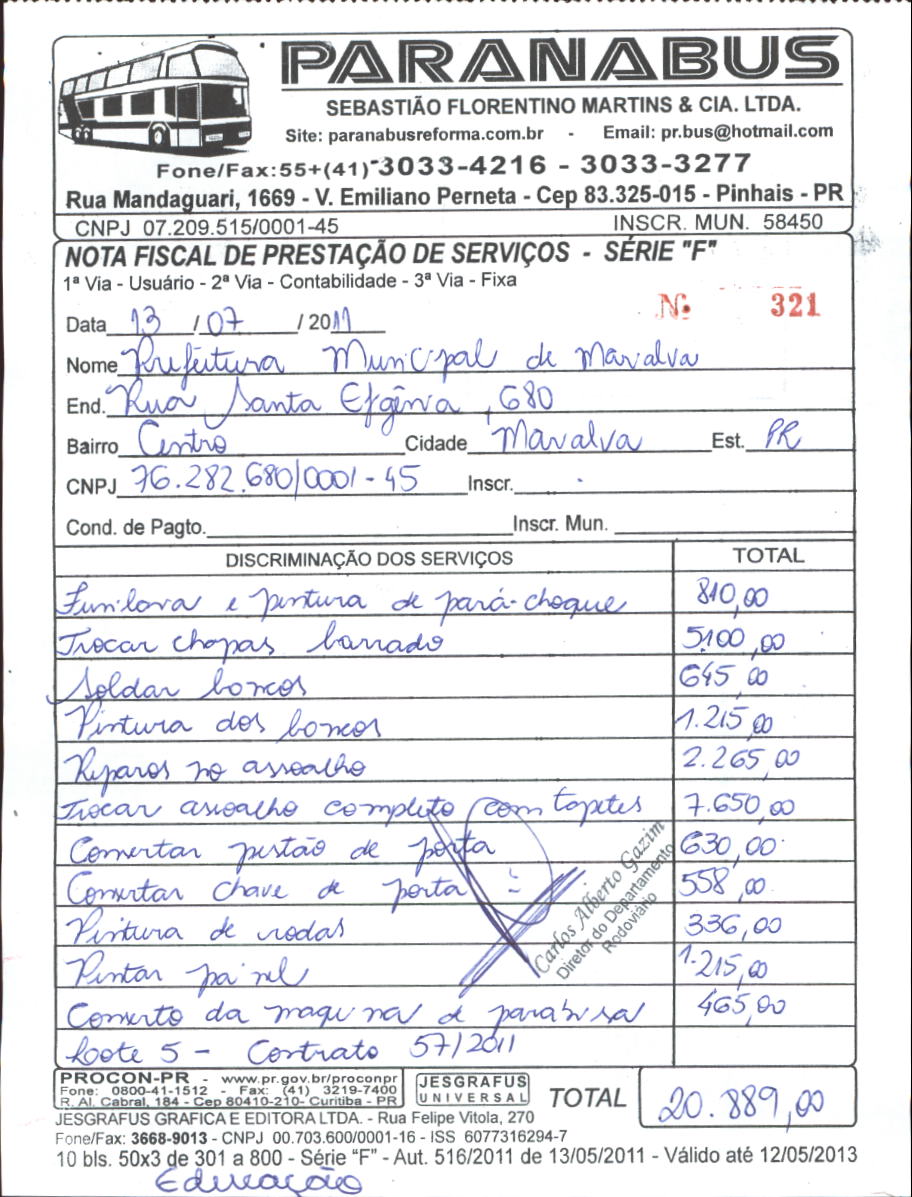 PARANABUS
SEBASTIÃO FLORENTINO MARTINS & CIA. LTDA.
Site: paranabusreforma.com.br - Email: pr.bus@hotmail.com
Fone/Fax:55+(41) 3033-4216 - 3033-3277
Rua Mandaguari, 1669 - V. Emiliano Perneta - Cep 83.325-015 - Pinhais - PR
CNPJ 07.209.515/0001-45 INSCR. MUN. 58450
NOTA FISCAL DE PRESTAÇÃO DE SERVIÇOS - SÉRIE "F"
1ª Via - Usuário - 2ª Via - Contabilidade - 3ª Via - Fixa
Nº 321
Data 13 / 07 / 2011
Nome Prefeitura Municipal de Marialva
End. Rua Santa Efigênia, 680
Bairro Centro Cidade Marialva Est. PR
CNPJ 76.282.680/0001-45 Inscr.
Cond. de Pagto. Inscr. Mun.
DISCRIMINAÇÃO DOS SERVIÇOS TOTAL
Funilaria e pintura de pará-choque 810,00
Trocar chapas barrado 5.100,00
Soldar bancos 645,00
Pintura dos bancos 1.215,00
Reparos no assoalho 2.265,00
Trocar assoalho completo com tapetes 7.650,00
Consertar pistão de porta 630,00
Consertar chave de porta 558,00
Pintura de rodas 336,00
Pintar painel 1.215,00
Conserto da maquina de parabrisa 465,00
Lote 5 - Contrato 57/2011
Carlos Alberto Gazim
Diretor do Departamento
Rodoviário
PROCON-PR - www.pr.gov.br/proconpr
Fone: 0800-41-1512 - Fax: (41) 3219-7400
R. Al. Cabral, 184 - Cep 80410-210- Curitiba - PR
JESGRAFUS
UNIVERSAL
TOTAL 20.889,00
JESGRAFUS GRAFICA E EDITORA LTDA. - Rua Felipe Vitola, 270
Fone/Fax: 3668-9013 - CNPJ 00.703.600/0001-16 - ISS 6077316294-7
10 bls. 50x3 de 301 a 800 - Série "F" - Aut. 516/2011 de 13/05/2011 - Válido até 12/05/2013
Educação